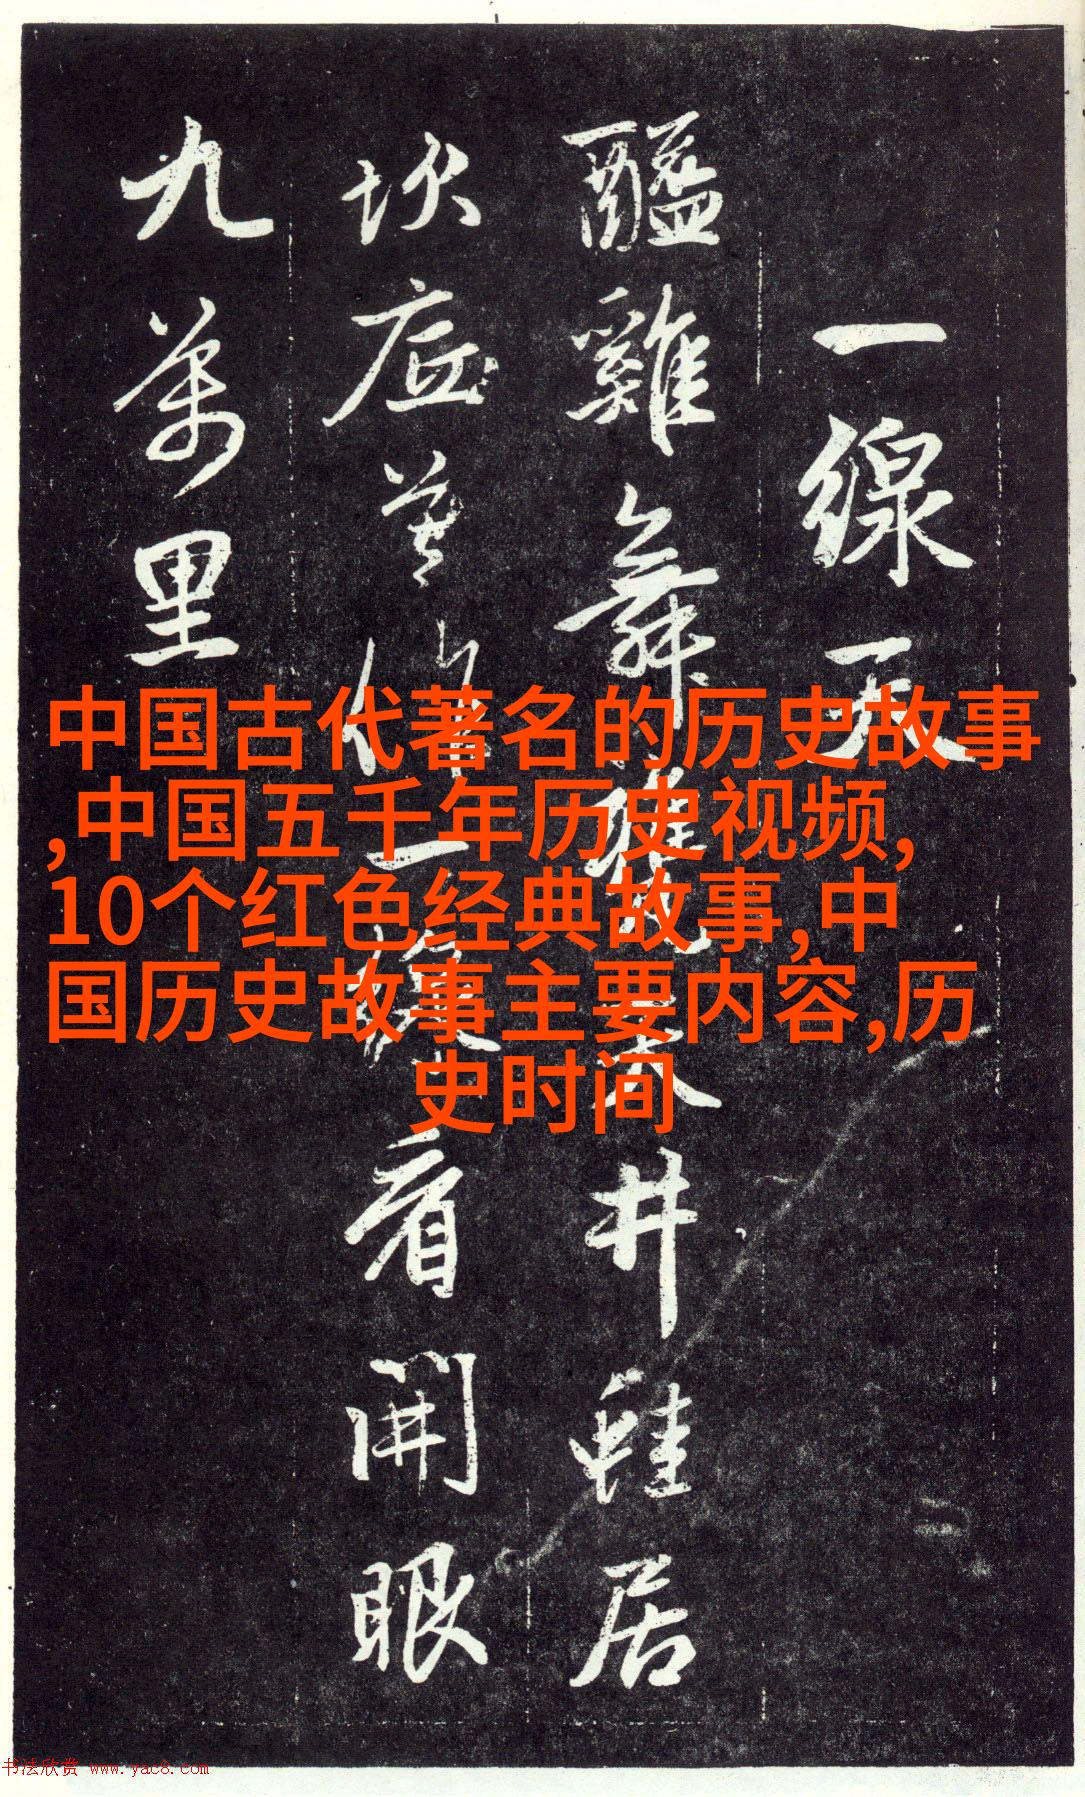 一線天
醯雞舞甕天井蛙居
坎底莫作一樣看開眼
九萬里
中国古代著名的历史故事
,中国五千年历史视频,
10个红色经典故事,中
国历史故事主要内容,历
史时间
书法欣赏 www.yac8.com